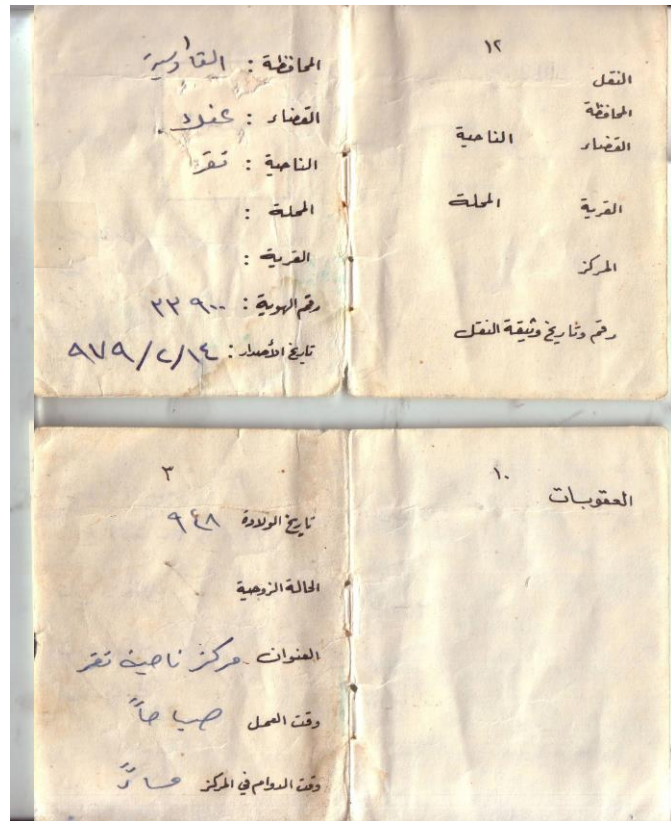 ١٢
النقل
المحافظة
القضاء الناحية
القرية المحلة
المركز
رقم وتاريخ وثيقة النقل
١
المحافظة : القادسية
القضاء : عفك
الناحية : نفر
المحلة :
القرية :
رقم الهوية : ٣٣٩٠٠
تاريخ الأصدار : ٩٧٩/٢/١٤
١٠
العقوبات
٣
تاريخ الولادة ٩٤٨
الحالة الزوجية
العنوان مركز ناحية نفر
وقت العمل صباحاً
وقت الدوام في المركز مساءً